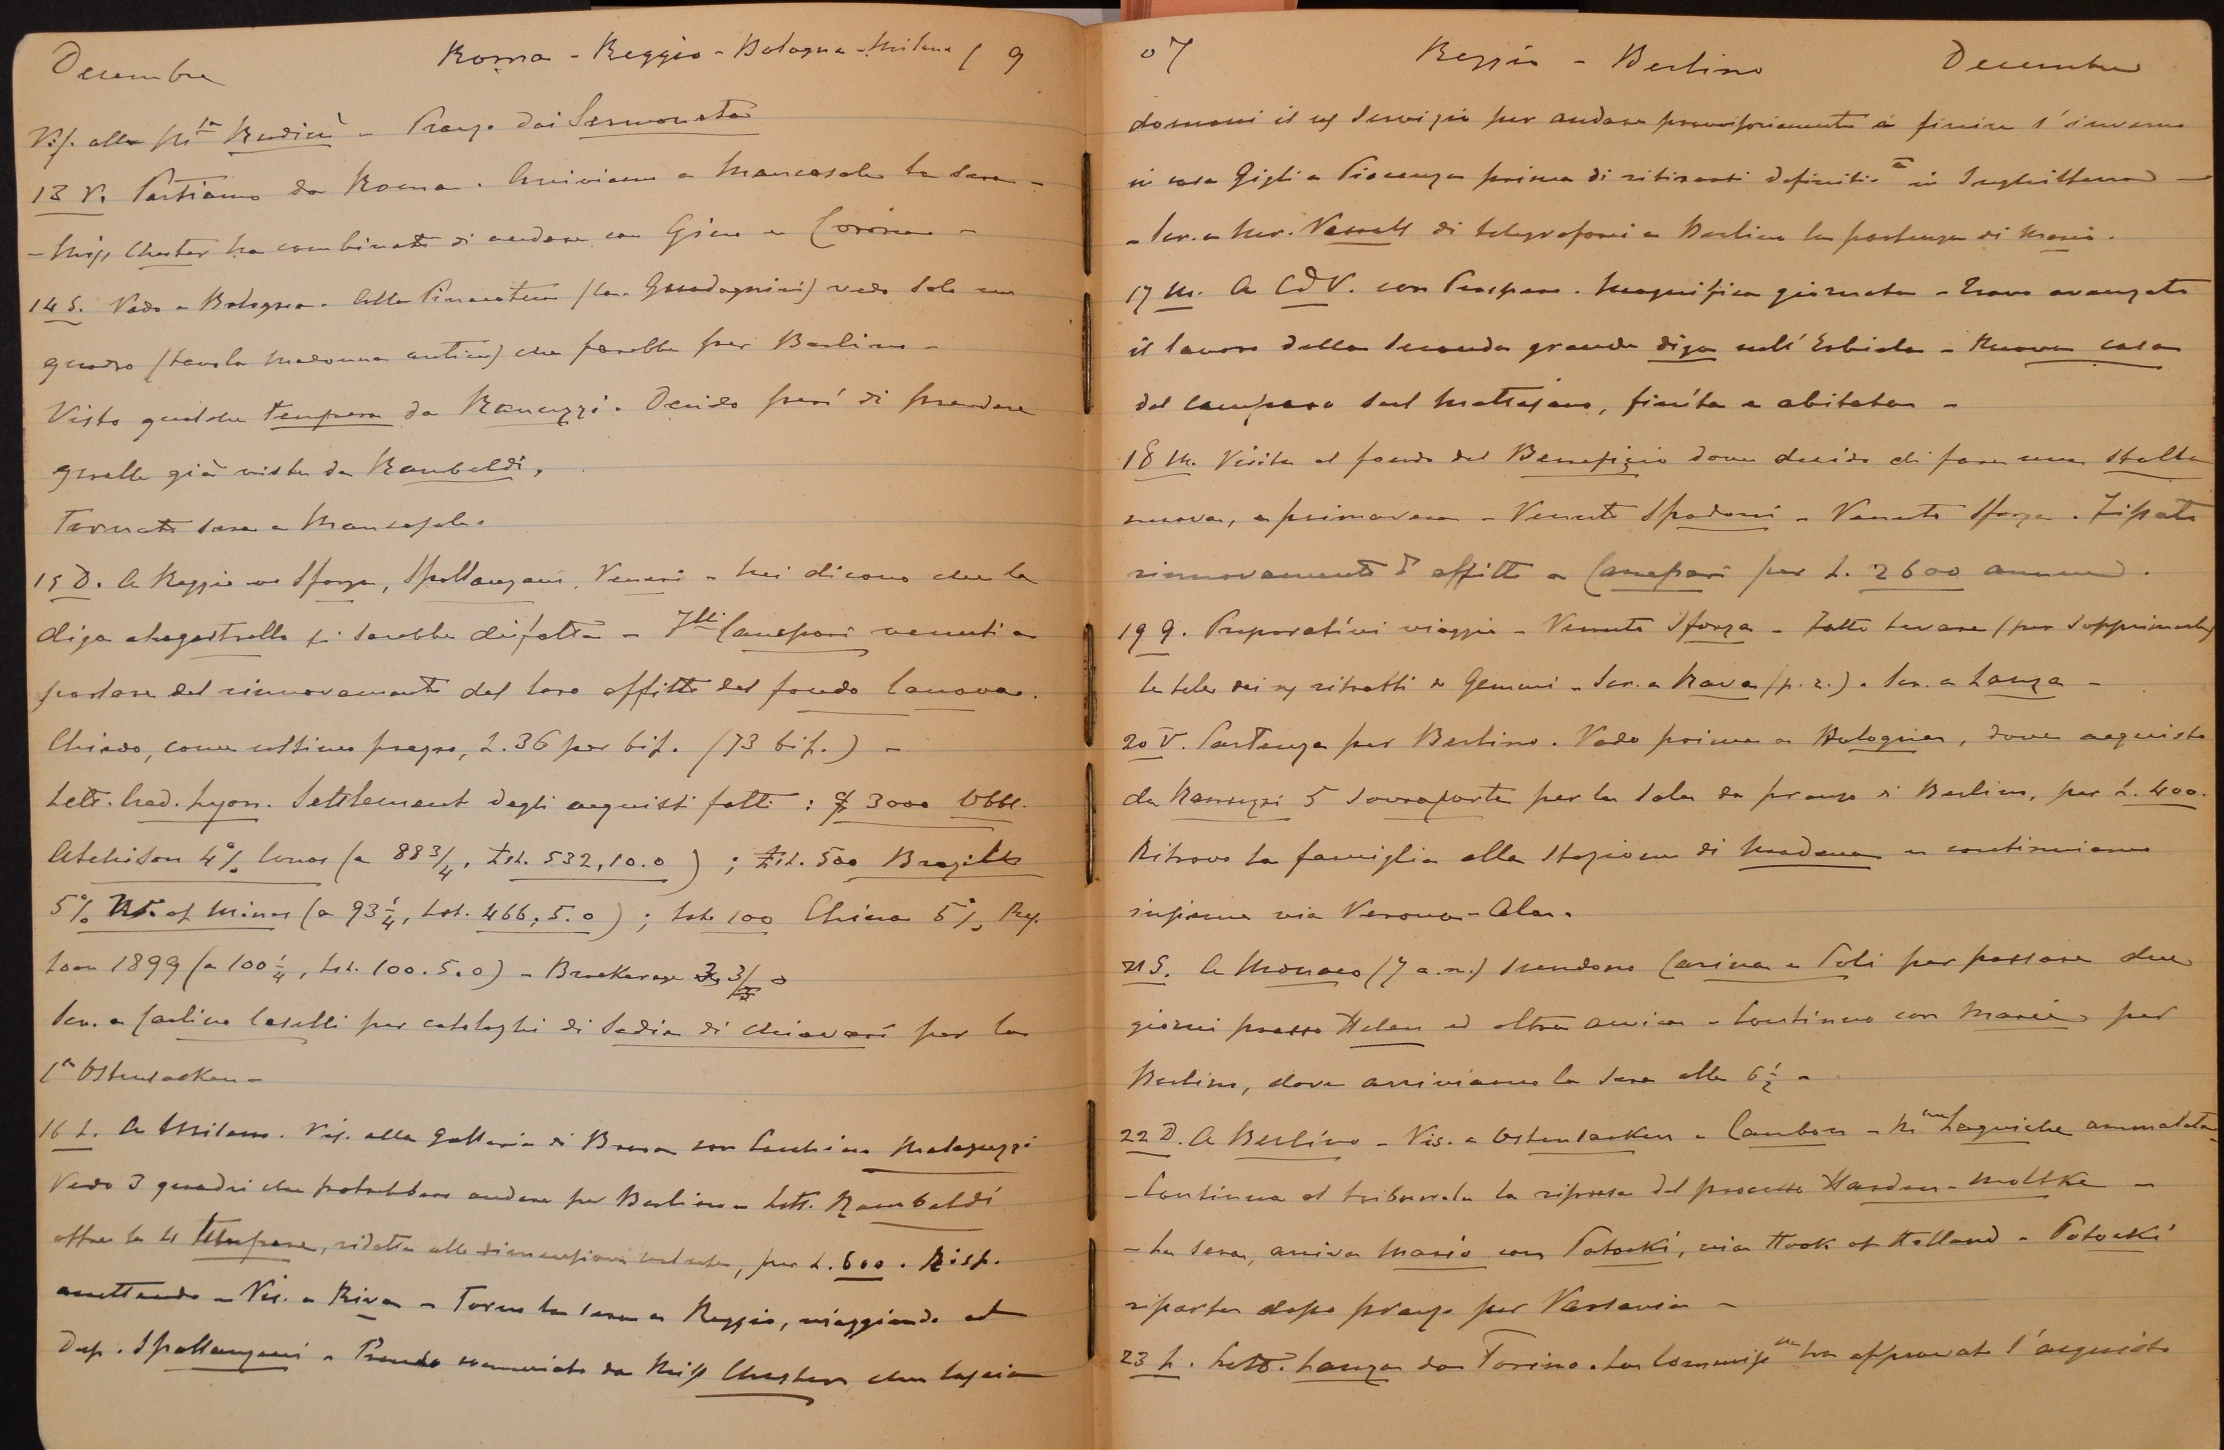 Decembre Roma - Reggio - Bologna - Milano 19
Vis. alla Pssa Rudinì - Pranzo dai Sermoneta
13 V. Partiamo da Roma. Arriviamo a Mancasale la sera -
- Miss Chester ha combinato di andare con Gina a
14 S. Vado a Bologna. Alla Pinacoteca (Cav. Guadagnini) vedo solo un
quadro (tavola madonna antica) che farebbe per Berlino -
Visto qualche tempera da Ranuzzi. Decido però di prendere
quelle già viste da Rambaldi.
Tornato sera a Mancasale.
15 D. A Reggio vedo Sforza, Spallanzani, Veneri - Mi dicono che la
diga si sarebbe disfatta - Flli Canepari venuti a
parlare del rinnovamento del loro affitto del fondo Canova.
Chiedo, come ultimo prezzo, L. 36 per bif. (73 bif.) -
Lett. Cred. Lyon. Settlement degli acquisti fatti: $ 3000 Obbl.
Atchison 4% Conv. (a 88 3/4, Lst. 532,10.0); Lst. 500 Brazil
5% of Minas (a 93 1/4, Lst. 466.5.0); Lst. 100 China 5%
Loan 1899 (a 100 1/4, Lst. 100.5.0) - Brokerage
Scr. a Carlino Caselli per cataloghi di Sedie di Chiavari per la
Css Ostensacken -
16 L. A Milano. Vis. alla Galleria di Brera con Cecchino Malaguzzi
Vedo 3 quadri che potrebbero andare per Berlino - Lett. Rambaldi
offre le 4 tempere, ridotte alle dimensioni volute, per L. 600. Risp.
accettando - Vis. a Riva - Torno la sera a Reggio, viaggiando col
Dep. Spallanzani - Prendo commiato da Miss Chester che lascia
07 Reggio - Berlino Decembre
domani il ns servizio per andare provvisoriamente a finire l'inverno
in casa Gigli a Piacenza prima di ritirarsi definitive in Inghilterra -
- Scr. a Mer. Vassall di telegrafarmi a Berlino la partenza di Mario.
17 M. A CdV. con Prospero. Magnifica giornata - Trovo avanzato
il lavoro della seconda grande diga sull' - Nuova casa
del campara sul Mattajano, finita e abitata -
18 M. Visita al fondo del Benefizio dove decido di fare una stalla
nuova, a primavera - Venuto Spadoni - Venuto Sforza. Fissato
rinnovamento d'affitto a Canepari per L. 2600 annue.
19 G. Preparativi viaggio - Venuto Sforza - Fatto levare (per sopprimerle)
le tele dei ns ritratti a Gemmi - Scr. a Rava (p. r.) - Scr. a Lanza -
20 V. Partenza per Berlino. Vado prima a Bologna, dove acquisto
da Ranuzzi 5 sovraporte per la sala da pranzo di Berlino, per L. 400.
Ritrovo la famiglia alla stazione di Modena e continuiamo
insieme via Verona - Ala.
21 S. A Monaco (7 a.m.) scendono Carina e Poli per passare due
giorni presso Helen ed altra amica - Continuo con Maria per
Berlino, dove arriviamo la sera alle 6 1/2 -
22 D. A Berlino - Vis. a Ostensacken e Cambon - Mme Laguiche ammalata -
- Continua al tribunale la ripresa del processo Harden-Moltke -
- La sera, arriva Mario con Potocki, via Hook of Holland - Potocki
riparte dopo pranzo per Varsavia -
23 L. Lett. Lanza da Torino. La Commissne ha approvato l'acquisto